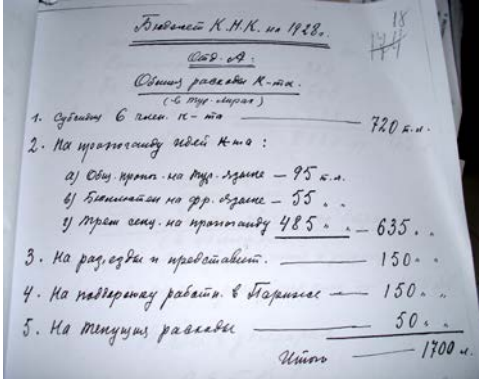 18
Бюджет К.Н.К. на 1928 г.
Отд. А.
Общия расходы К-та.
(в тур. лирах)
1. Субсидия 6 член. к-та — 720 т.л.
2. На пропоганду идей К-та :
а) Общ. пропог. на тур. языке — 95 т.л.
в) Бюллетен на фр. языке — 55 " "
г) секц. на пропоганду 485 " " — 635 " "
3. На раз,езды и представит. — 150 " "
4. На поддержку работн. в Париже — 150 " "
5. На текущия расходы — 50 " "
Итого — 1700 л.